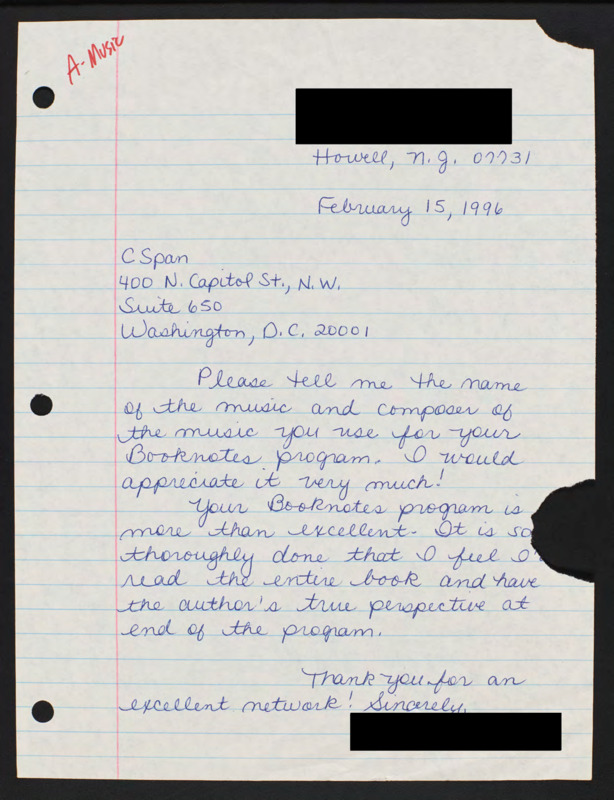 A- Music
Howell, N.J. 07731
February 15, 1996
C Span
400 N. Capitol St., N.W.
Suite 650
Washington, D.C. 20001
Please tell me the name
of the music and composer of
the music you use for your
Booknotes program. I would
appreciate it very much!
Your Booknotes program is
more than excellent. It is so
thoroughly done that I feel I'
read the entire book and have
the author's true perspective at
end of the program.
Thank you for an
excellent network! Sincerely,